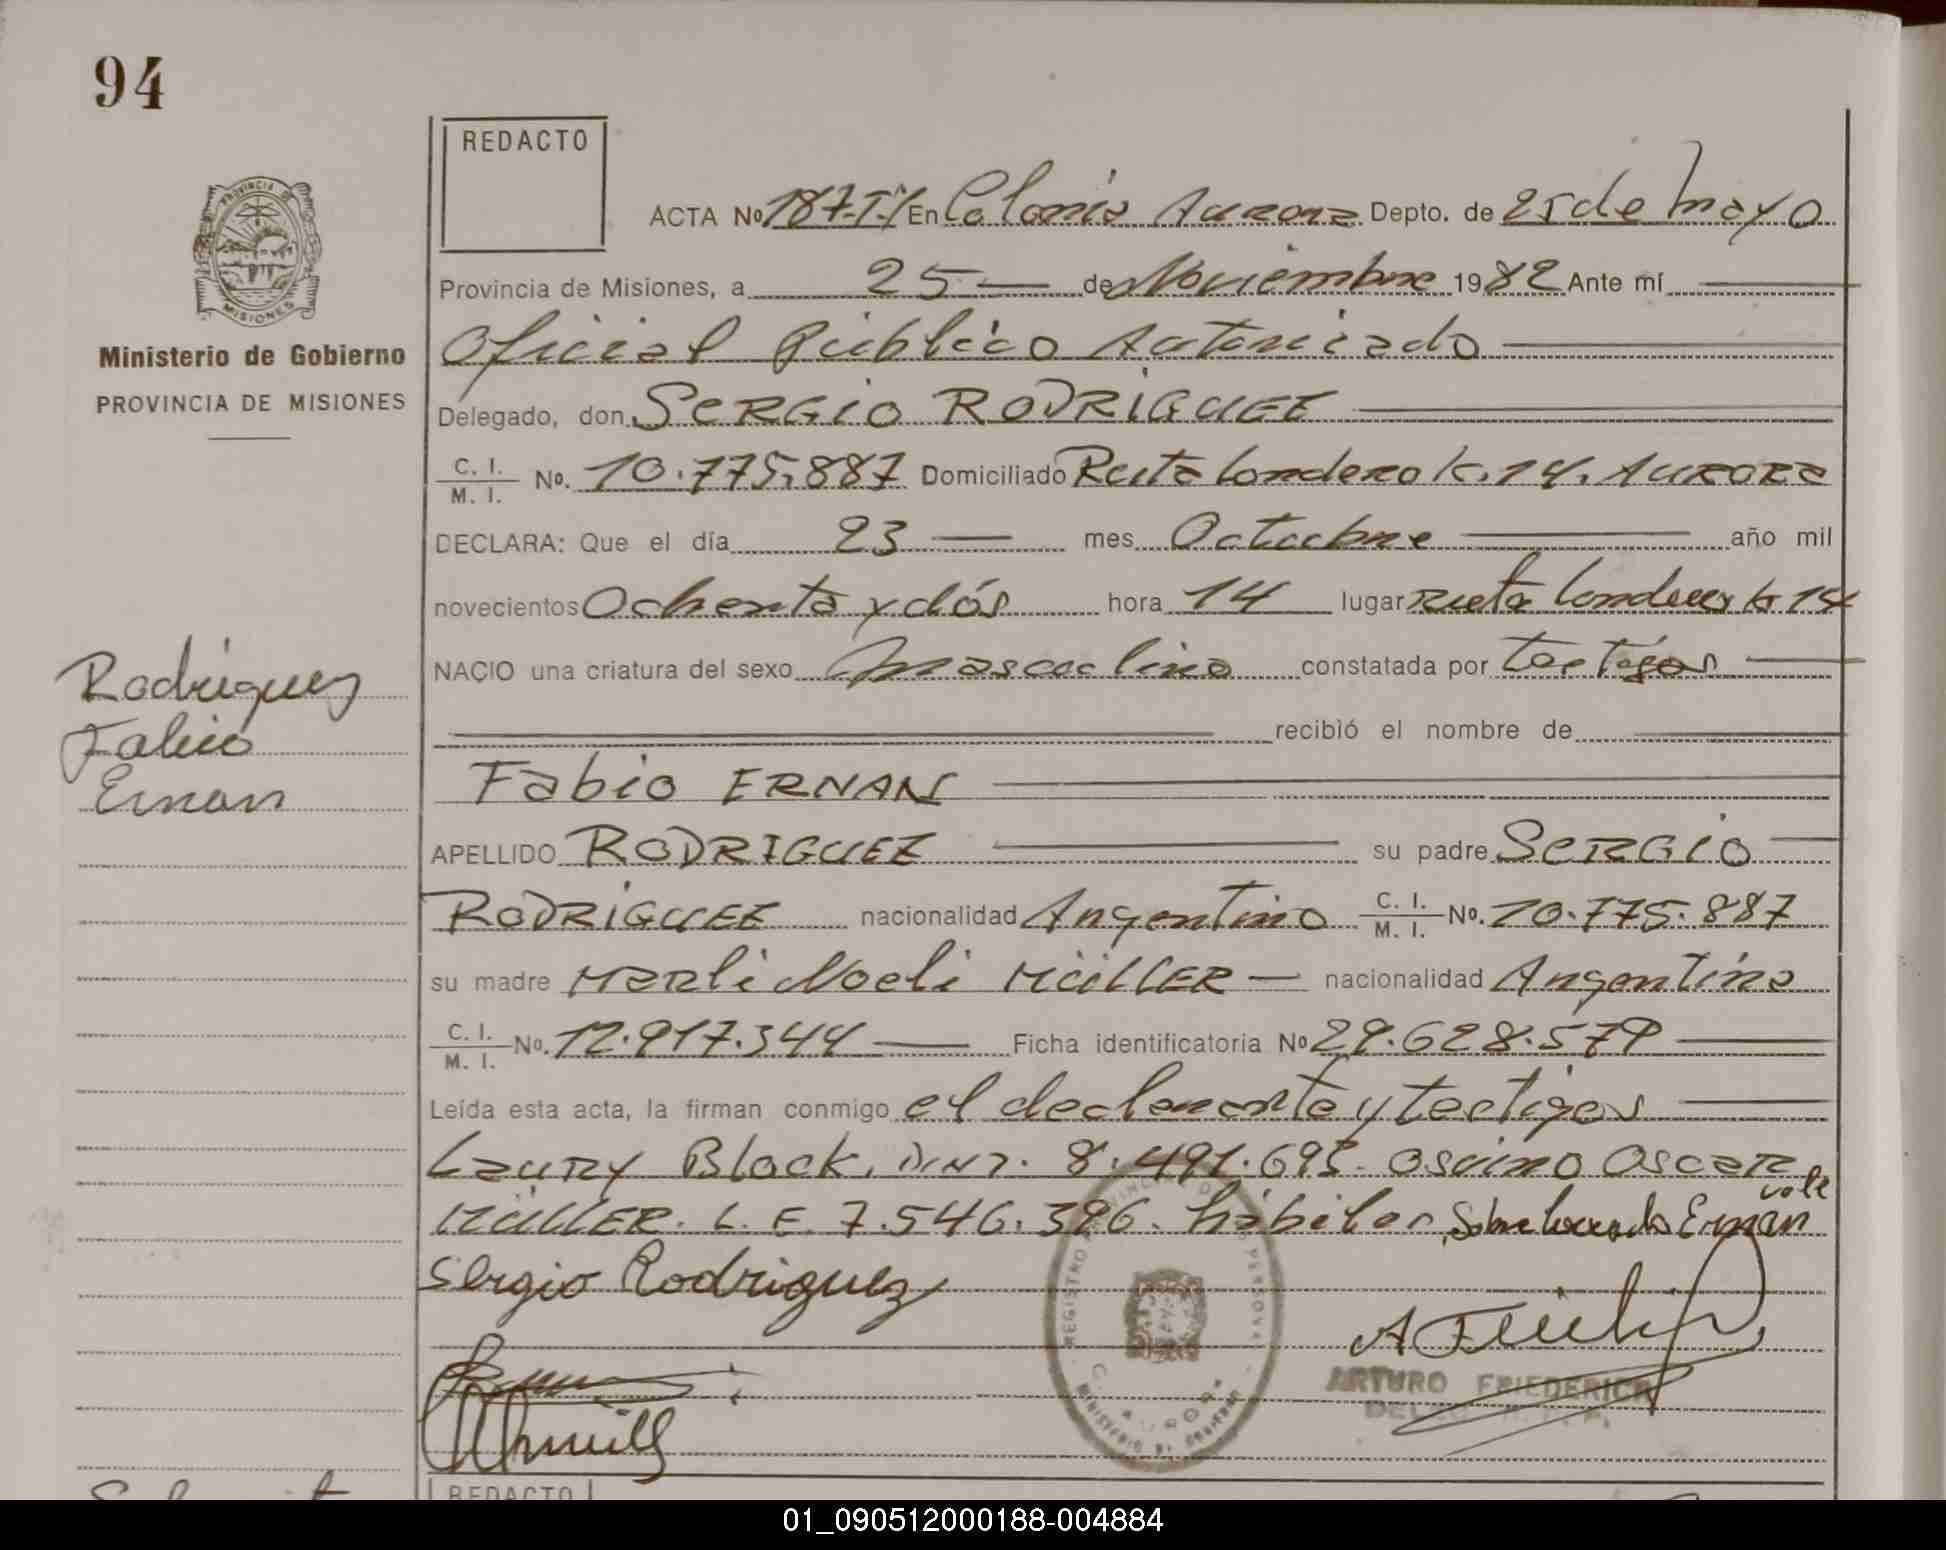 94
REDACTO
ACTA Nº 187-T.I/ En Colonia Aurora Depto. de 25 de mayo
Provincia de Misiones, a 25 — de Noviembre 1982 Ante mí
Ministerio de Gobierno
PROVINCIA DE MISIONES
Oficial Público Autorizado
Delegado, don SERGIO RODRIGUEZ
C. I. / M. I. No. 10.775.887 Domiciliado Ruta Londero K. 14. AURORA
DECLARA: Que el día 23 — mes Octubre — año mil
novecientos Ochenta y dós hora 14 lugar Ruta Londero K 14
NACIO una criatura del sexo masculino constatada por testigos
recibió el nombre de
Rodriguez
Fabio
Ernan
Fabio ERNAN
APELLIDO RODRIGUEZ su padre SERGIO
RODRIGUEZ nacionalidad Argentino C. I. / M. I. No. 10.775.887
su madre Marli Noeli MÜLLER — nacionalidad Argentina
C. I. / M. I. No. 12.917.344 — Ficha identificatoria Nº 29.628.579
Leída esta acta, la firman conmigo el declarante y testigos
Laury Block. D.N.I. 8.491.695. Osvino OSCAR
MÜLLER. L. E. 7.546.396. hábiles Sobre borrado Ernan vale
Sergio Rodriguez
ARTURO FRIEDERICH
MISIONES
REDACTO
01_090512000188-004884